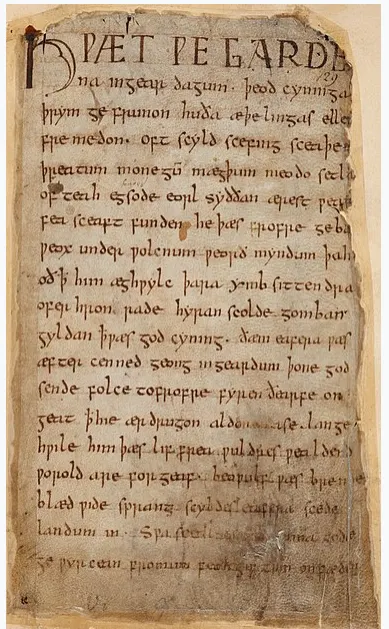 HǷÆT ǷE GARDE
na ingear dagum · þeod cyninga
þrym ge frunon huða æþelingas elle
fre medon. oft scyld scefing sceaþe
þreatum monegū mægþum meodo setla
of teah egsode eorl syððan ærest
fea sceaft funden he þæs frofre geba
ƿeox under ƿolcnum ƿeorð myndum þah
oðꝥ him æghƿylc þara ymb sittendra
ofer hron rade hyran scolde gomban
gyldan ꝥ ƿæs god cyning. ðæm eafera ƿæs
æfter cenned geong ingeardum þone god
sende folce tofrofre fyren ðearfe on
geat ꝥ hie ær drugon lange
hƿile him þæs liffrea ƿuldres ƿealdend
ƿorold are for geaf. beoƿulf ƿæs breme
blæd ƿide sprang scyldes eafera scede
landum in. Sƿa sceal gode
ge ƿyrcean fromum feoh giftum on fæder